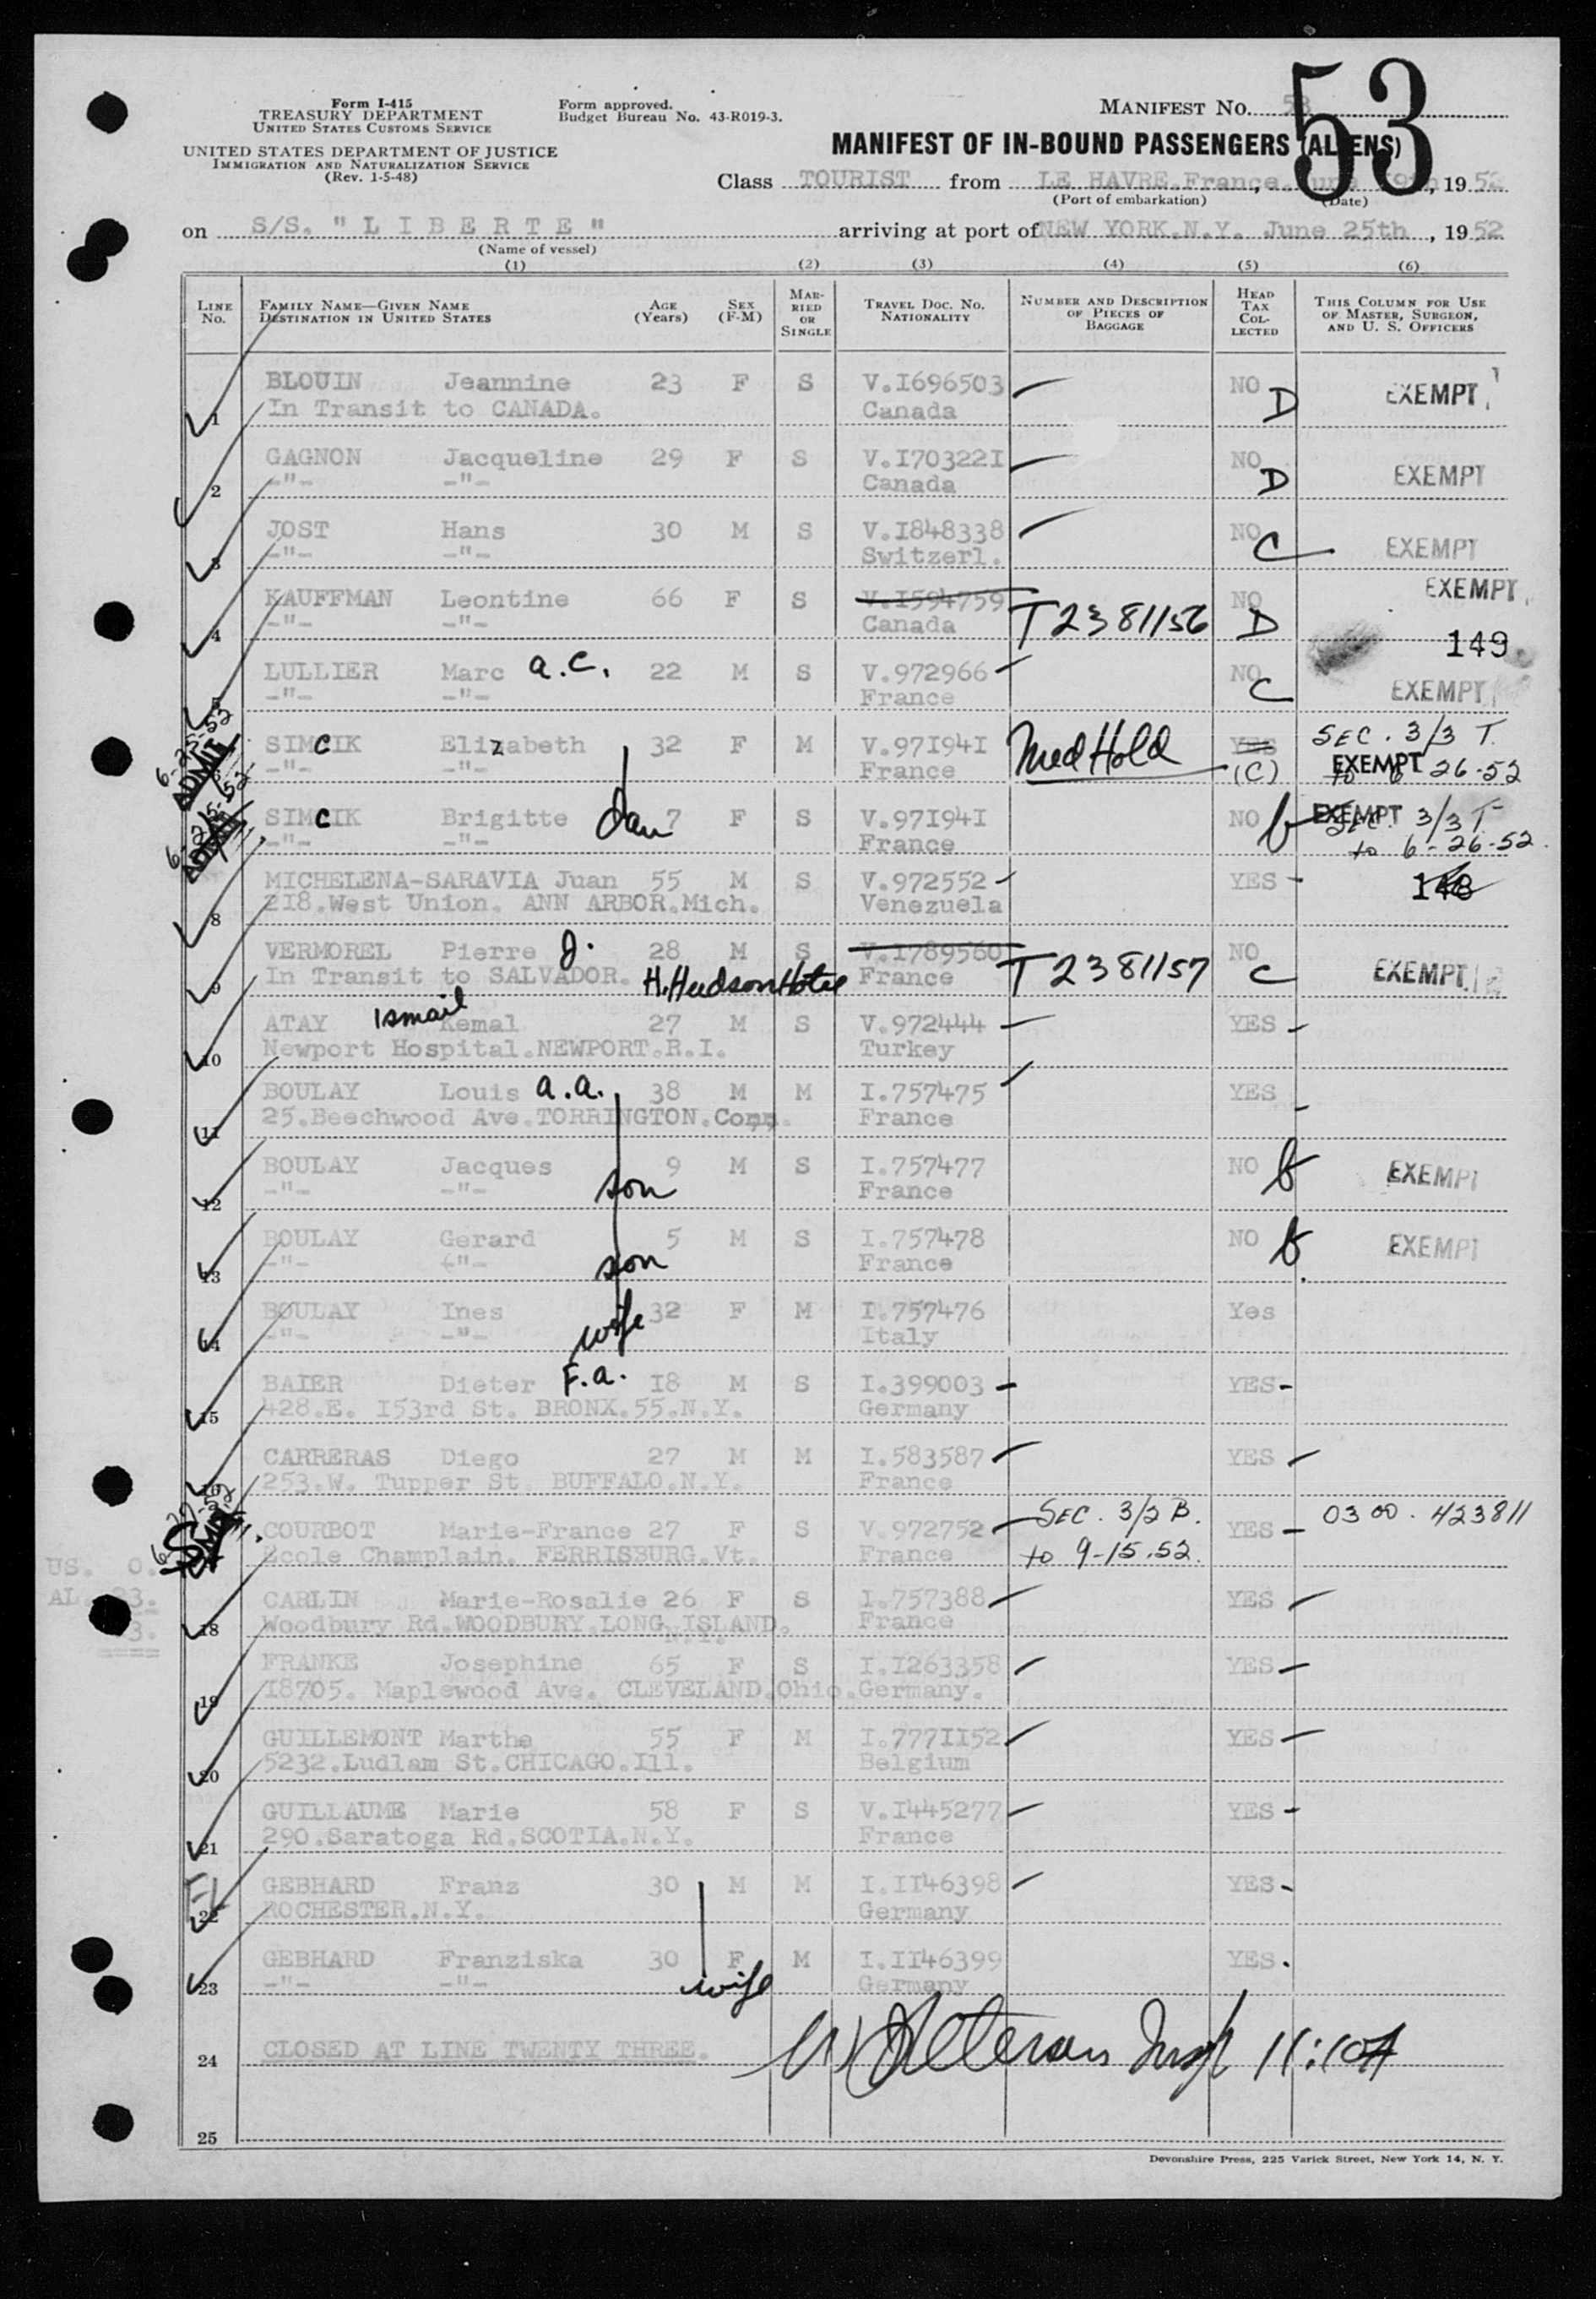 53
Form I-415
TREASURY DEPARTMENT
UNITED STATES CUSTOMS SERVICE
UNITED STATES DEPARTMENT OF JUSTICE
IMMIGRATION AND NATURALIZATION SERVICE
(Rev. 1-5-48)
Form approved.
Budget Bureau No. 43-R019-3.
MANIFEST NO. 53
MANIFEST OF IN-BOUND PASSENGERS (ALIENS)
Class TOURIST from LE HAVRE.France. June 19th, 1952
(Port of embarkation) (Date)
on S/S. "LIBERTE" arriving at port of NEW YORK.N.Y. June 25th, 1952
(Name of vessel)
(1) (2) (3) (4) (5) (6)
LINE No. FAMILY NAME—GIVEN NAME DESTINATION IN UNITED STATES AGE (Years) SEX (F-M) MARRIED OR SINGLE TRAVEL DOC. NO. NATIONALITY NUMBER AND DESCRIPTION OF PIECES OF BAGGAGE HEAD TAX COLLECTED THIS COLUMN FOR USE OF MASTER, SURGEON, AND U. S. OFFICERS
1 BLOUIN Jeannine 23 F S V.I696503 NO D EXEMPT
In Transit to CANADA. Canada
2 GAGNON Jacqueline 29 F S V.I70322I NO D EXEMPT
-"- -"- Canada
3 JOST Hans 30 M S V.I848338 NO C EXEMPT
-"- -"- Switzerl.
4 KAUFFMAN Leontine 66 F S V.I594759 T2381156 NO D EXEMPT
-"- -"- Canada 149
5 LULLIER Marc a.C. 22 M S V.972966 NO C EXEMPT
-"- -"- France
6 SIMCIK Elizabeth 32 F M V.97I94I Med Hold YES (C) SEC. 3/3 T.
-"- -"- France EXEMPT to 6 26-52
6-25-52 ADMIT
7 SIMCIK Brigitte dau 7 F S V.97I94I NO b EXEMPT SEC. 3/3 T
-"- -"- France to 6-26-52
6-25-52
8 MICHELENA-SARAVIA Juan 55 M S V.972552 YES 148
218.West Union. ANN ARBOR.Mich. Venezuela
9 VERMOREL Pierre J. 28 M S V.I789560 T2381157 NO C EXEMPT
In Transit to SALVADOR. H.Hudson Hotel France
10 ATAY Ismail Kemal 27 M S V.972444 YES
Newport Hospital.NEWPORT.R.I. Turkey
11 BOULAY Louis a.a. 38 M M I.757475 YES
25.Beechwood Ave.TORRINGTON.Conn. France
12 BOULAY Jacques 9 M S I.757477 NO b EXEMPT
-"- -"- son France
13 BOULAY Gerard 5 M S I.757478 NO b EXEMPT
-"- -"- son France
14 BOULAY Ines 32 F M I.757476 Yes
-"- -"- wife Italy
15 BAIER Dieter F.a. I8 M S I.399003 YES
428.E. I53rd St. BRONX.55.N.Y. Germany
16 CARRERAS Diego 27 M M I.583587 YES
253.W. Tupper St. BUFFALO.N.Y. France
COURBOT Marie-France 27 F S V.972752 SEC. 3/2 B. YES 0300. 423811
Ecole Champlain. FERRISBURG.Vt. France to 9-15.52.
US. 0.
18 CARLIN Marie-Rosalie 26 F S I.757388 YES
Woodbury Rd.WOODBURY.LONG ISLAND. N.Y. France
19 FRANKE Josephine 65 F S I.I263358 YES
I8705. Maplewood Ave. CLEVELAND.Ohio. Germany.
20 GUILLEMONT Marthe 55 F M I.777II52 YES
5232.Ludlam St.CHICAGO.Ill. Belgium
21 GUILLAUME Marie 58 F S V.I445277 YES
290.Saratoga Rd.SCOTIA.N.Y. France
22 GEBHARD Franz 30 M M I.II46398 YES
ROCHESTER.N.Y. Germany
23 GEBHARD Franziska 30 F M I.II46399 YES.
-"- -"- wife Germany
24 CLOSED AT LINE TWENTY THREE. 11:10A
25
Devonshire Press, 225 Varick Street, New York 14, N. Y.